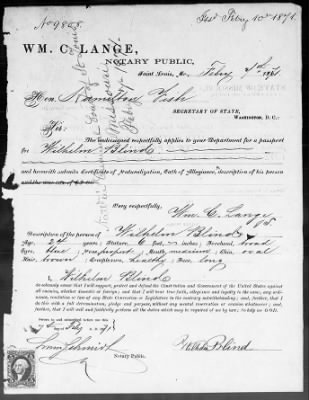 No 9808.
Iss Feby 10th 1871.
WM. C. LANGE,
NOTARY PUBLIC,
Saint Louis, Mo., Feby 7th 1871
Hon. Hamilton Fish
SECRETARY OF STATE,
WASHINGTON, D. C.:
Sir:
The undersigned respectfully applies to your Department for a passport
for Wilhelm Blind
and herewith submits Certificate of Naturalization, Oath of Allegiance, description of his person
Very respectfully,
Wm. C. Lange
Description of the person of Wilhelm Blind
Age, 24 years; Stature, 6 feet, inches; Forehead, broad
Eyes, blue; Nose, ; Mouth, ; Chin, oval
Hair, brown; Complexion, healthy; Face, long
I, Wilhelm Blind
do solemnly swear that I will support, protect and defend the Constitution and Government of the United States against
all enemies, whether domestic or foreign; and that I will bear true faith, allegiance and loyalty to the same, any ordinance,
resolution or law of any State Convention or Legislature to the contrary notwithstanding; and further, that I do
this with a full determination, pledge and purpose, without any mental reservation or evasion whatsoever; and
further, that I will well and faithfully perform all the duties which may be required of me by law; So help me GOD.
Sworn to and subscribed before me this
Feby 1871
Louis Schmidt
Notary Public.
Wilhelm Blind